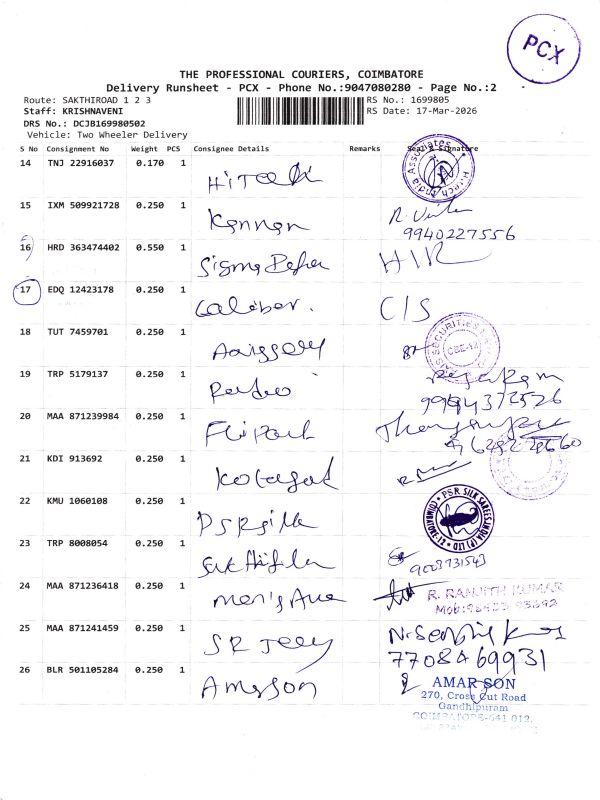 PCX
THE PROFESSIONAL COURIERS, COIMBATORE
Delivery Runsheet - PCX - Phone No.:9047080280 - Page No.:2
Route: SAKTHIROAD 1 2 3
RS No.: 1699805
Staff: KRISHNAVENI
RS Date: 17-Mar-2026
DRS No.: DCJB169980502
Vehicle: Two Wheeler Delivery
S No Consignment No Weight PCS Consignee Details Remarks Seal & Signature
14 TNJ 22916037 0.170 1
15 IXM 509921728 0.250 1 Kannan
9940227556
16 HRD 363474402 0.550 1 HIR
17 EDQ 12423178 0.250 1 Caliber. CIS
18 TUT 7459701 0.250 1
19 TRP 5179137 0.250 1
20 MAA 871239984 0.250 1
21 KDI 913692 0.250 1
22 KMU 1060108 0.250 1
PSR SILK SAREES INDIA (P) LTD
23 TRP 8008054 0.250 1
9008731543
24 MAA 871236418 0.250 1 R. RANJITH KUMAR
25 MAA 871241459 0.250 1
26 BLR 501105284 0.250 1 AMAR SON
270, Cross Cut Road
Gandhipuram
COIMBATORE-641 012.